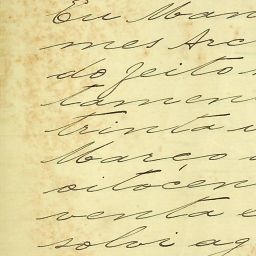 Eu Man
mes Arc
do feito
tamen
trinta
Março
oitocen
venta e
solvi ag